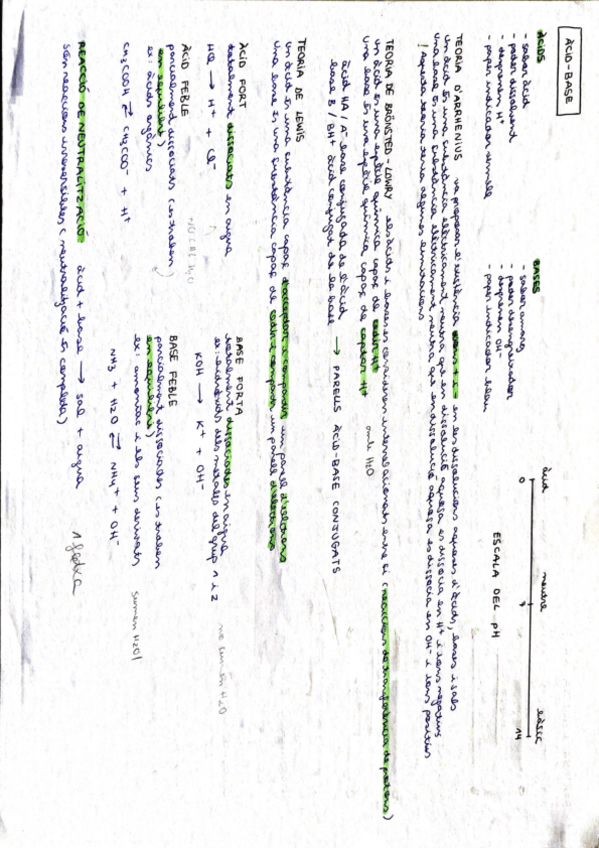 ÀCID-BASE
ÀCIDS
- sabor àcid
- poder dissolvent
- desprenen H⁺
- paper indicador vermell
BASES
- sabor amarg
- poder desengreixador
- desprenen OH⁻
- paper indicador blau
àcid neutre bàsic
0 7 14
ESCALA DEL pH
TEORIA D'ARRHENIUS va proposar l'existència d'ions + i - en les dissolucions aquoses d'àcids, bases i sals
un àcid és una substància elèctricament neutra que en dissolució aquosa es dissocia en H⁺ i ions negatius
una base és una substància elèctricament neutra que en dissolució aquosa es dissocia en OH⁻ i ions positius
! aquesta teoria tenia algunes limitacions
TEORIA DE BRÖNSTED-LOWRY els àcids i bases es consideren interrelacionats entre si (reaccions de transferència de protons)
un àcid és una espècie química capaç de cedir H⁺
una base és una espècie química capaç de captar H⁺
amb H₂O
àcid HA / A⁻ base conjugada de l'àcid
base B / BH⁺ àcid conjugat de la base
→ PARELLS ÀCID-BASE CONJUGATS
TEORIA DE LEWIS
un àcid és una substància capaç d'acceptar i compartir un parell d'electrons
una base és una substància capaç de cedir i compartir un parell d'electrons
ÀCID FORT
totalment dissociats en aigua
HCl → H⁺ + Cl⁻
NO CAL H₂O
BASE FORTA
totalment dissociades en aigua
ex: hidròxids dels metalls del grup 1 i 2
KOH → K⁺ + OH⁻
no sumen H₂O
ÀCID FEBLE
parcialment dissociats (es troben
en equilibri)
ex: àcids orgànics
CH₃COOH ⇌ CH₃COO⁻ + H⁺
BASE FEBLE
parcialment dissociades (es troben
en equilibri)
ex: amoníac i els seus derivats
NH₃ + H₂O ⇌ NH₄⁺ + OH⁻
sumen H₂O!
REACCIÓ DE NEUTRALITZACIÓ àcid + base → sal + aigua
són reaccions irreversibles (neutralització és completa)
1 fletxa